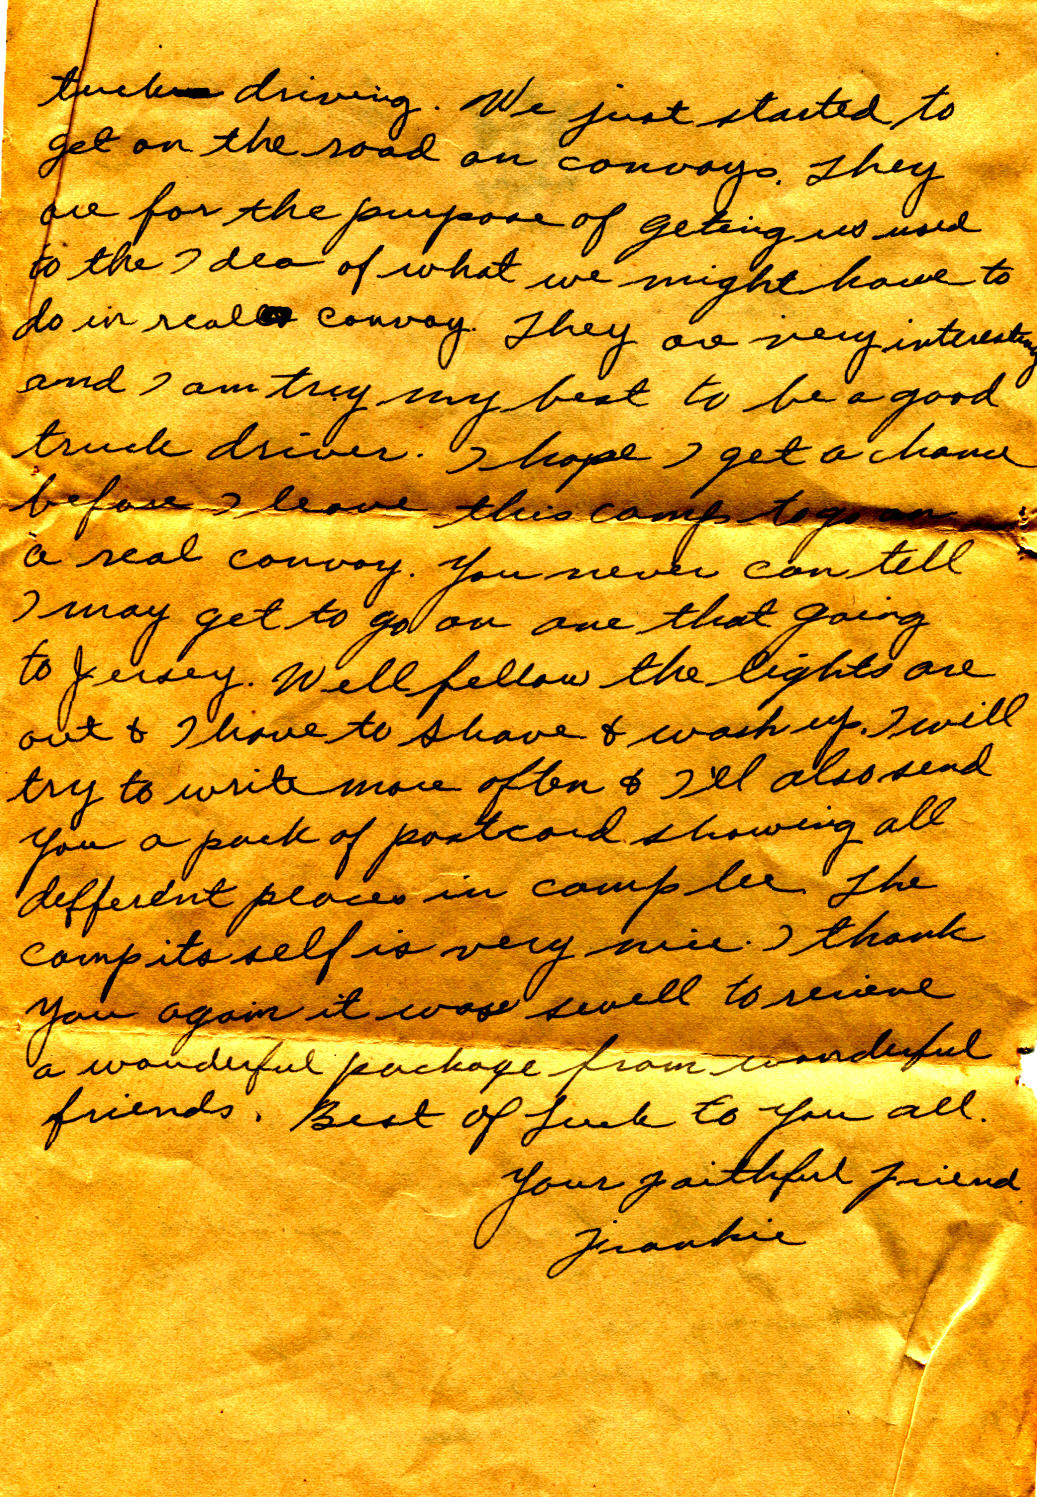 truck driving. We just started to
get on the road on convoys. They
are for the purpose of geting us used
to the Idea of what we might have to
do in real convoy. They are very interesting
and I am try my best to be a good
truck driver. I hope I get a chance
before I leave this camp to go on
a real convoy. You never can tell
I may get to go on one that going
to Jersey. Well fellow the lights are
out & I have to shave & wash up. I will
try to write more often & I'll also send
you a pack of postcard showing all
different places in camp lee. The
camp its self is very nice. I thank
you again it was swell to recieve
a wonderful package from wonderful
friends. Best of Luck to you all.
Your faithful friend
Frankie